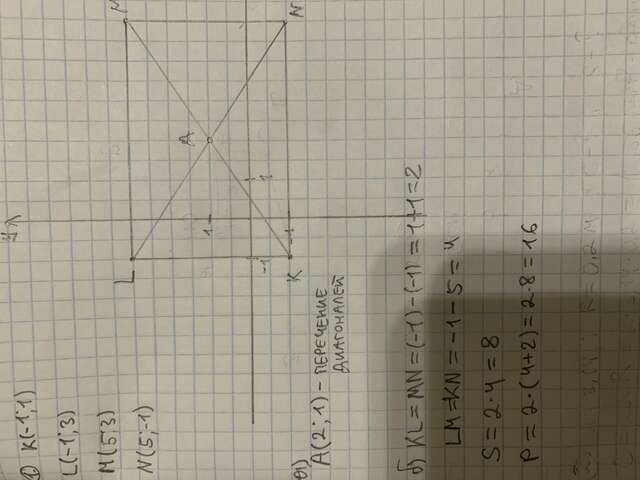 1) K(-1;1)
L(-1;3)
M(5;3)
N(5;-1)
y
L
M
A
N
K
1
1
-1
-1
а)
A(2;1) - ПЕРЕЧЕНИЕ
ДИАГОНАЛЕЙ
б) KL = MN = (-1) - (-1) = 1+1=2
LM=KN = -1 - 5 = 4
S = 2·4 = 8
P = 2·(4+2) = 2·8 = 16